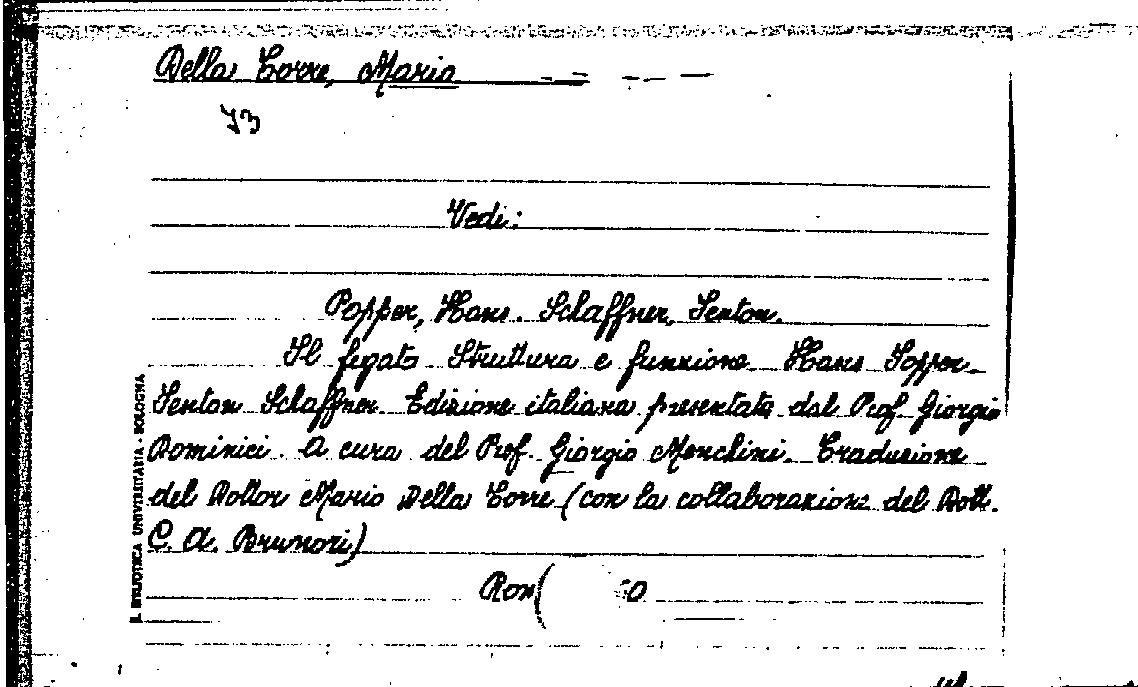 Della Torre, Mario
Vedi:
Popper, Hans. Schaffner, Fenton.
Il fegato Struttura e funzione Hans Popper-
Fenton Schaffner. Edizione italiana presentata dal Prof Giorgio
Dominici. A cura del Prof. Giorgio Menchini. Traduzione
del Dottor Mario Della Torre (con la collaborazione del Dott.
C. A. Brunori)
B. BIBLIOTECA UNIVERSITARIA - BOLOGNA